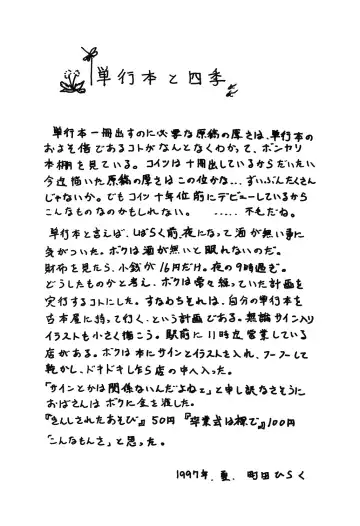 単行本と四季
単行本一冊出すのに必要な原稿の厚さは、単行本の
およそ倍であるコトがなんとなくわかって、ボンヤリ
本棚を見ている。コイツは十冊出しているからだいたい
今迄描いた原稿の厚さはこの位かな...ずいぶんたくさん
じゃないか。でもコイツ十年位前にデビューしているから
こんなものなのかもしれない。 ..... 不毛だね。
単行本と言えば、しばらく前、夜になって酒が無い事に
気がついた。ボクは酒が無いと眠れないのだ。
財布を見たら、小銭が16円だけ。夜の9時過ぎ。
どうしたものかと考え、ボクは常々練っていた計画を
実行するコトにした。すなわちそれは、自分の単行本を
古本屋に持って行く、という計画である。無論サイン入り
イラストも小さく描こう。駅前に11時迄営業している
店がある。ボクは本にサインとイラストを入れ、フーフーして
乾かし、ドキドキしながら店の中へ入った。
「サインとかは関係ないんだよねェ」と申し訳なさそうに
おばさんはボクに金を渡した。
『きんしされたあそび』50円 『卒業式は裸で』100円
「こんなもんさ」と思った。
1997年.夏. 町田ひらく